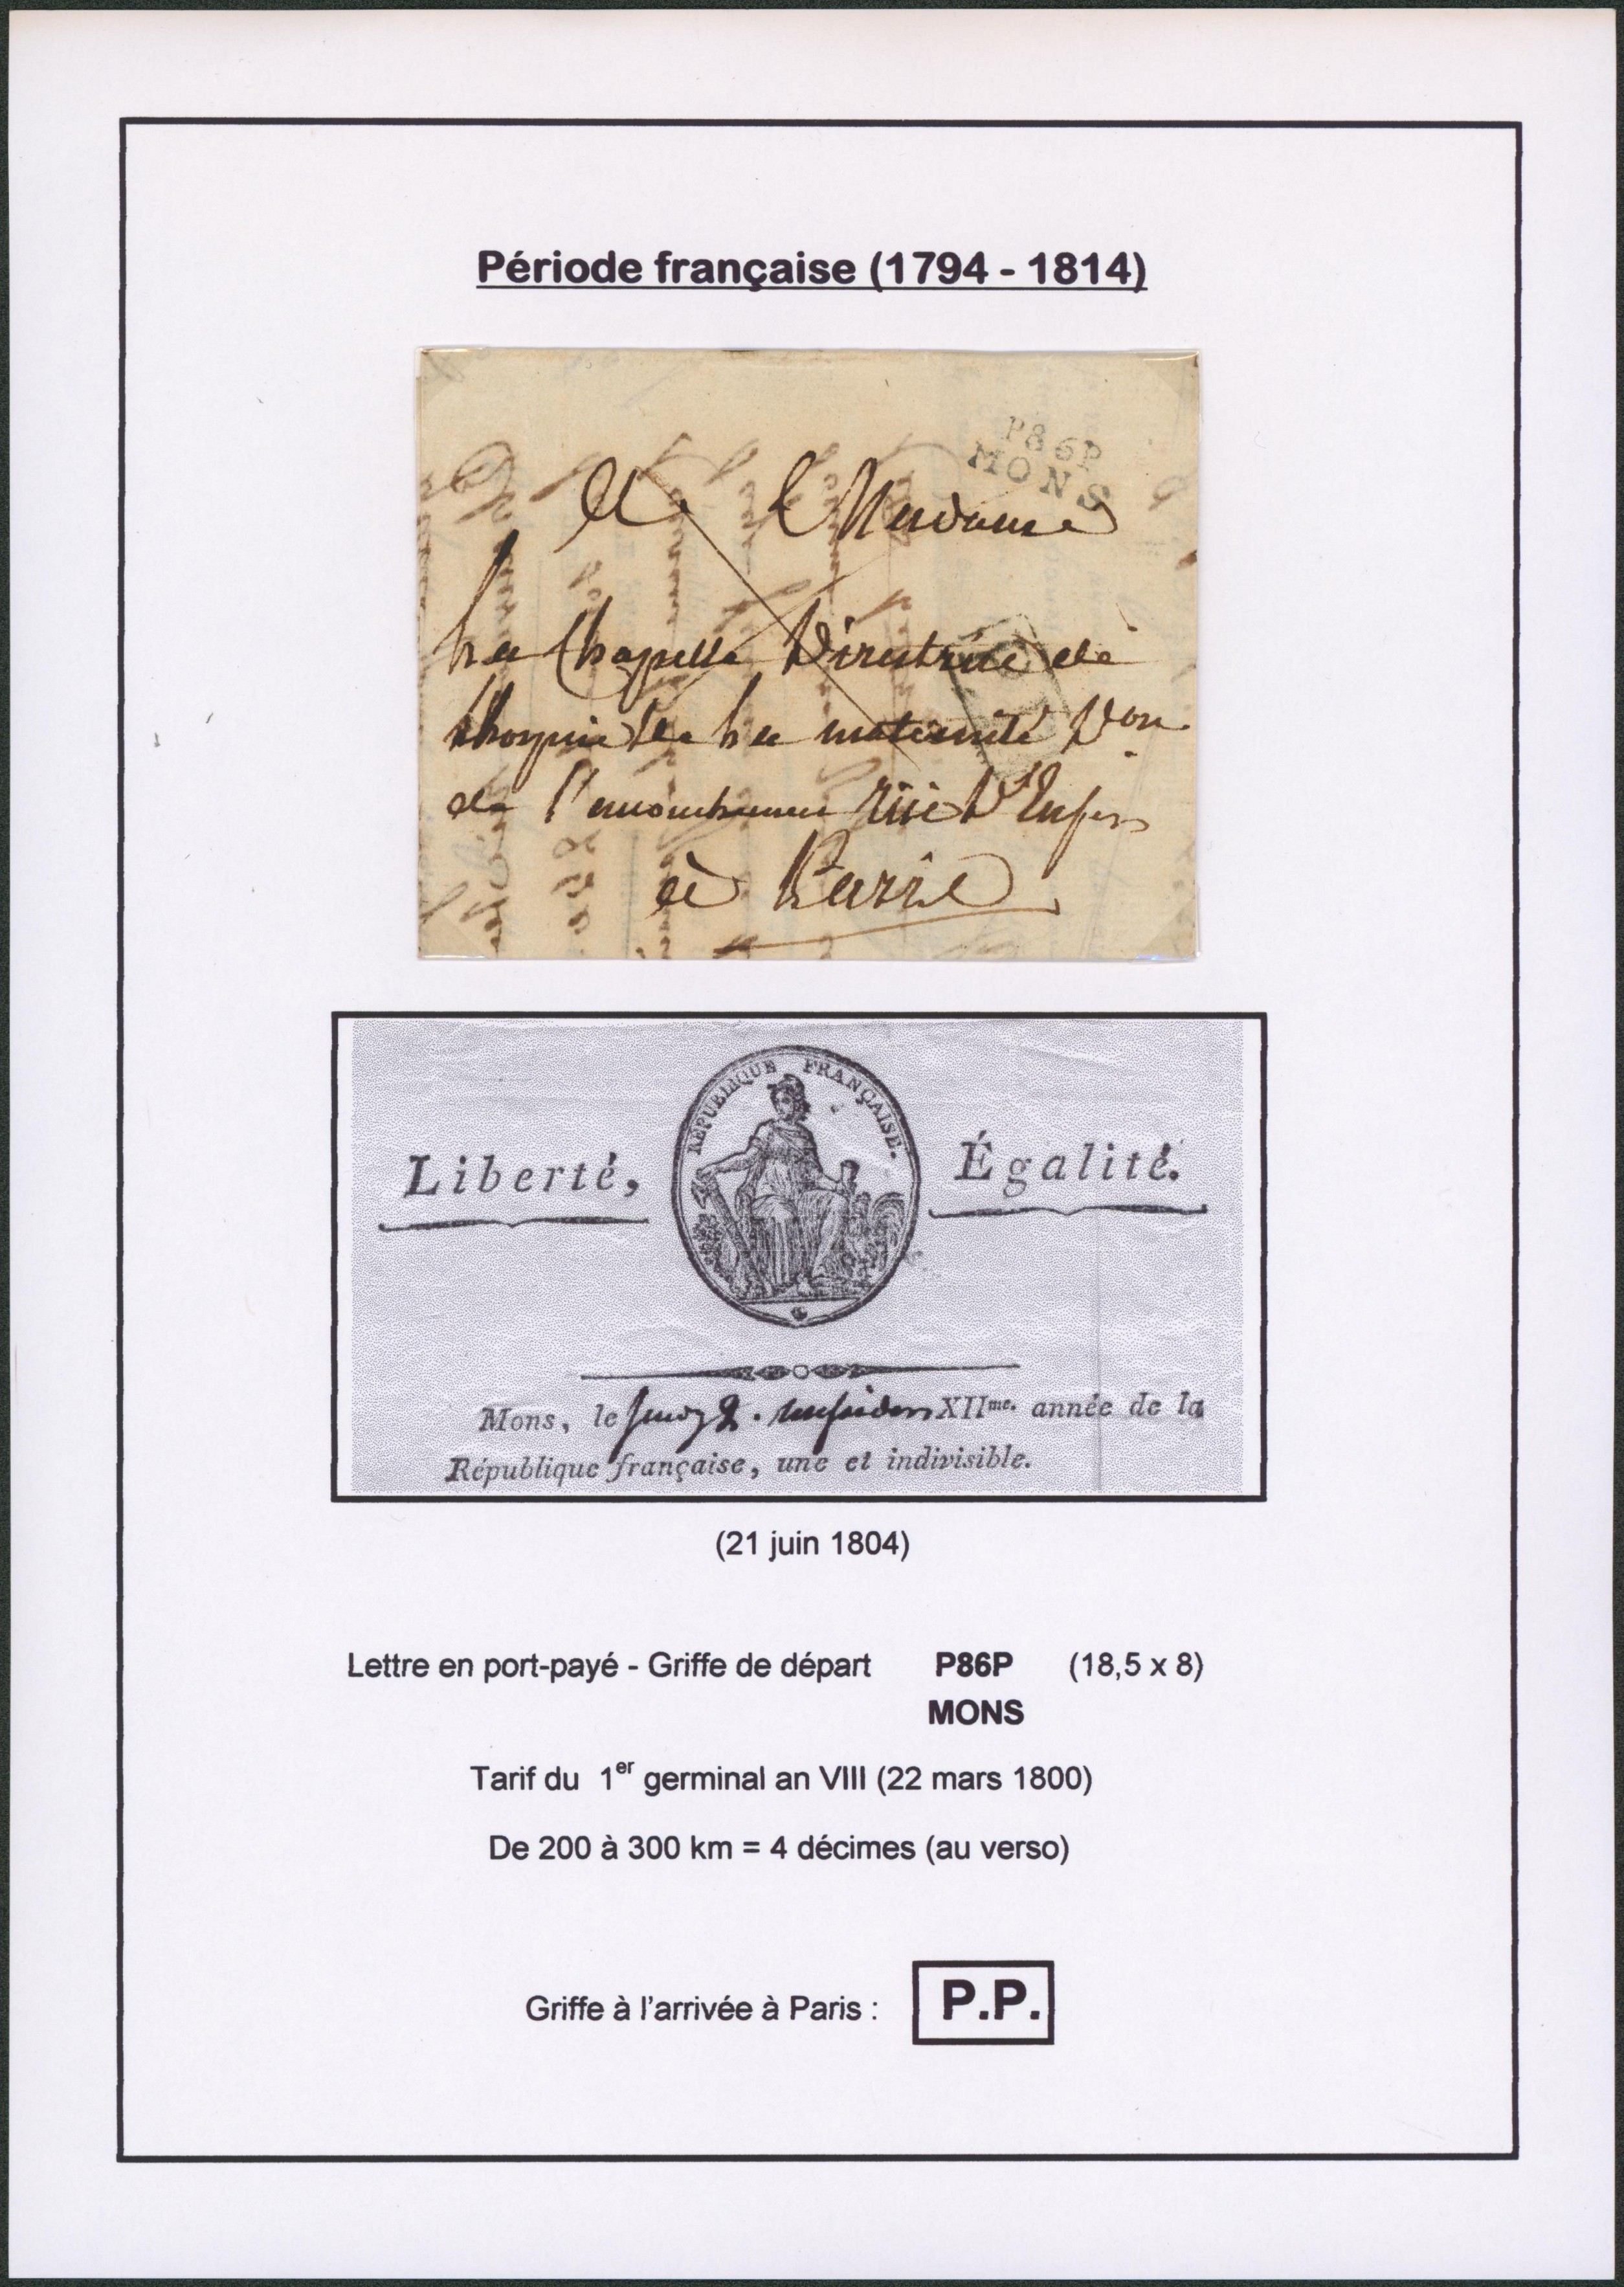 Période française (1794 - 1814)
P86P
MONS
A Madame
La Chapelle Directrice de
l'hospice de la maternité Son
de l'accouchement rüe d'Enfer
à Paris
RÉPUBLIQUE FRANÇAISE.
Liberté, Égalité.
Mons, le 2. messidor XIIme. année de la
République française, une et indivisible.
(21 juin 1804)
Lettre en port-payé - Griffe de départ P86P (18,5 x 8)
MONS
Tarif du 1er germinal an VIII (22 mars 1800)
De 200 à 300 km = 4 décimes (au verso)
Griffe à l'arrivée à Paris : P.P.